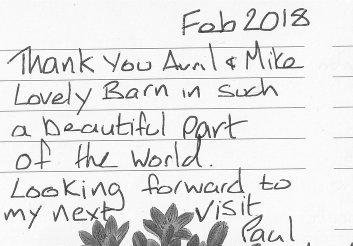 Feb 2018
Thank You Avril & Mike
Lovely Barn in such
a beautiful part
of the World.
Looking forward to
my next visit
Paul